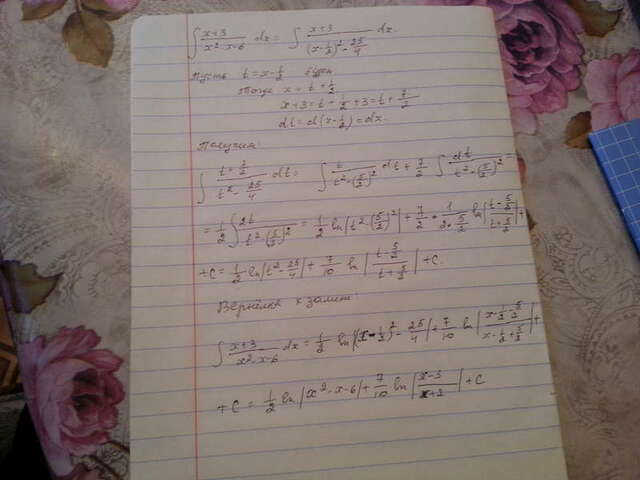 ∫ (x+3)/(x²-x-6) dx = ∫ (x+3)/((x-1/2)² - 25/4) dx.
Пусть t = x - 1/2
тогда x = t + 1/2
x+3 = t + 1/2 + 3 = t + 7/2
dt = d(x-1/2) = dx.
Получим:
∫ (t+7/2)/(t² - 25/4) dt = ∫ t/(t²-(5/2)²) dt + 7/2 ∫ dt/(t²-(5/2)²) =
= 1/2 ∫ 2t/(t²-(5/2)²) = 1/2 ln|t²-(5/2)²| + 7/2 · 1/(2·5/2) ln|(t-5/2)/(t+5/2)| +
+C = 1/2 ln|t² - 25/4| + 7/10 ln|(t-5/2)/(t+5/2)| + C.
Вернёмся к замен
∫ (x+3)/(x²-x-6) dx = 1/2 ln|(x-1/2)² - 25/4| + 7/10 ln|(x-1/2-5/2)/(x-1/2+5/2)| +
+C = 1/2 ln|x²-x-6| + 7/10 ln|(x-3)/(x+2)| + C